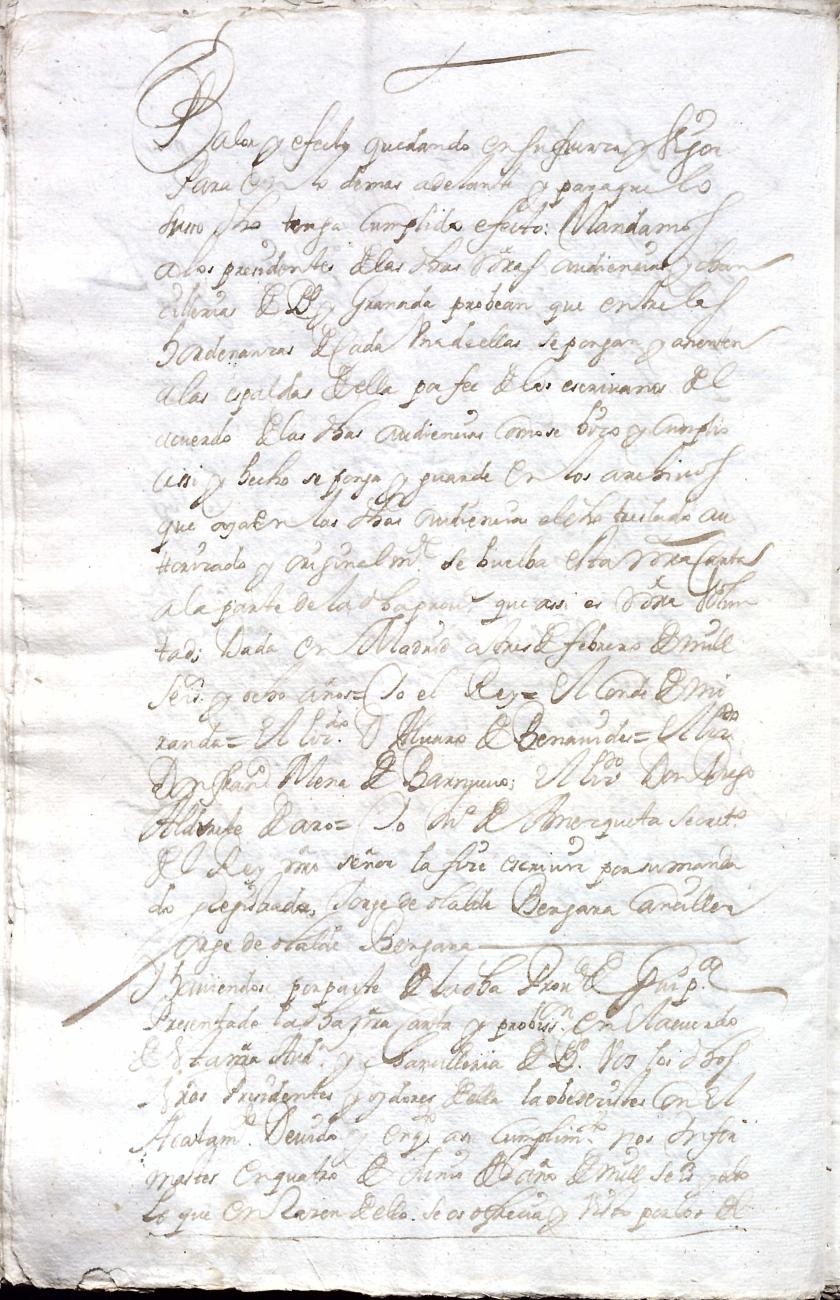 Balor y efecto quedando en su fuerza y bigor
Para en lo demas adelante y para que lo
suso dho tenga cumplido efecto: Mandamos
a los presidentes de las dhas nras audiencias y chan
cillerias de Bd y Granada probean que entre las
hordenanzas de cada una de ellas se pongan y asienten
a las espaldas de ella por fee de los escrivanos del
acuerdo de las dhas audiencias como se hizo y cumplio
assi y hecho se ponga y guarde en los archivos
que ay en las dhas audiencias el dho traslado au
torizado y originalmte se buelba esta nra Carta
a la parte de la dha provª que assi es nra Volun
tad; Dada en Madrid a tres de febrero de mill
seisº y ocho años= Yo el Rey= El Conde de Mi
randa= El licdo. D Alvaro de Benauides= El licdo
Don franº Mena de Barnuevo; El licdo Don Diego
Aldrete de aro= Yo de Amezqueta secretº
del Rey nro señor la fize escriuir por su manda
do Registrada, Jorge de olalde Bergara Canciller
Jorge de olalde Bergara
Y haviendose por parte de la dha Provª de Guipª
Presentado la dha nra carta y probission en el acuerdo
de Nra Audª y chancilleria de Bd. Vos los dhos
Nros Presidentes y oydores de ella la obedecistes con el
Acatamto Devido y en qto a su cumplimto nos infor
mastes en quatro de Junio del año de mill seisº y ocho
lo que en Razon de ello se os ofrecia y Visto por los del